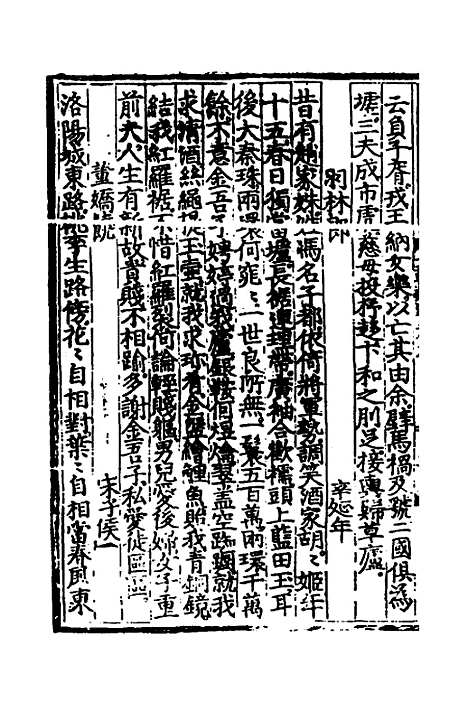 云負千眷戎王納女樂以亡其由余璧馬禍及虢二國俱為
墟三夫成市虎慈母投杼趍卞和之刖足接輿歸草廬
羽林郎 辛延年
昔有趙家姝 馮名子都依倚將軍勢調笑酒家胡〻姬年
十五春日獨當壚長裾連理帶廣袖合歡襦頭上藍田玉耳
後大秦珠兩鬟何窕〻一世良所無一鬟五百萬兩環千萬
餘不意金吾子娉婷過我廬銀鞍何煜爚翠盖空踟躕就我
求清酒絲繩提玉壺就我求珍肴金盤繪鯉魚貽我青銅鏡
結我紅羅裾不惜紅羅裂何論輕賤軀男兒愛後婦女子重
前夫人生有新故貴賤不相踰多謝金吾子私愛徒區區
董嬌饒 宋子侯
洛陽城東路桃李生路傍花〻自相對葉〻自相當春風東